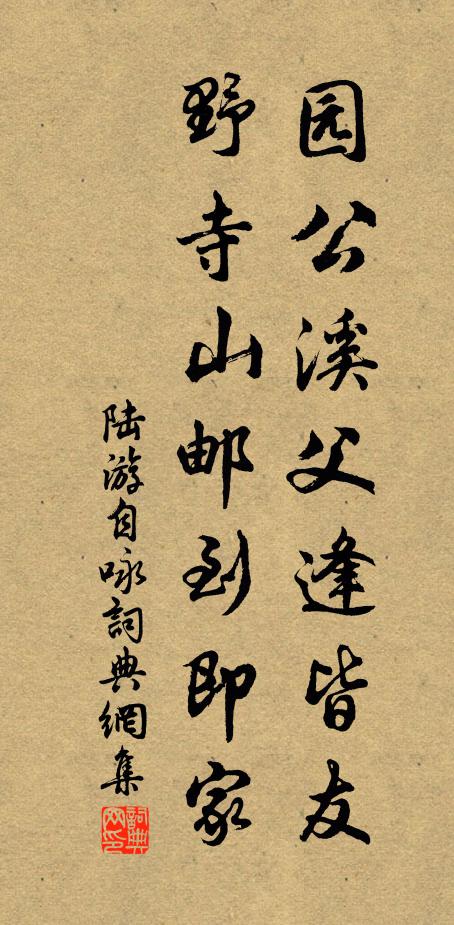 园公溪父逢皆友
野寺山邮到即家
陆游自咏詞典網集
詞典网印